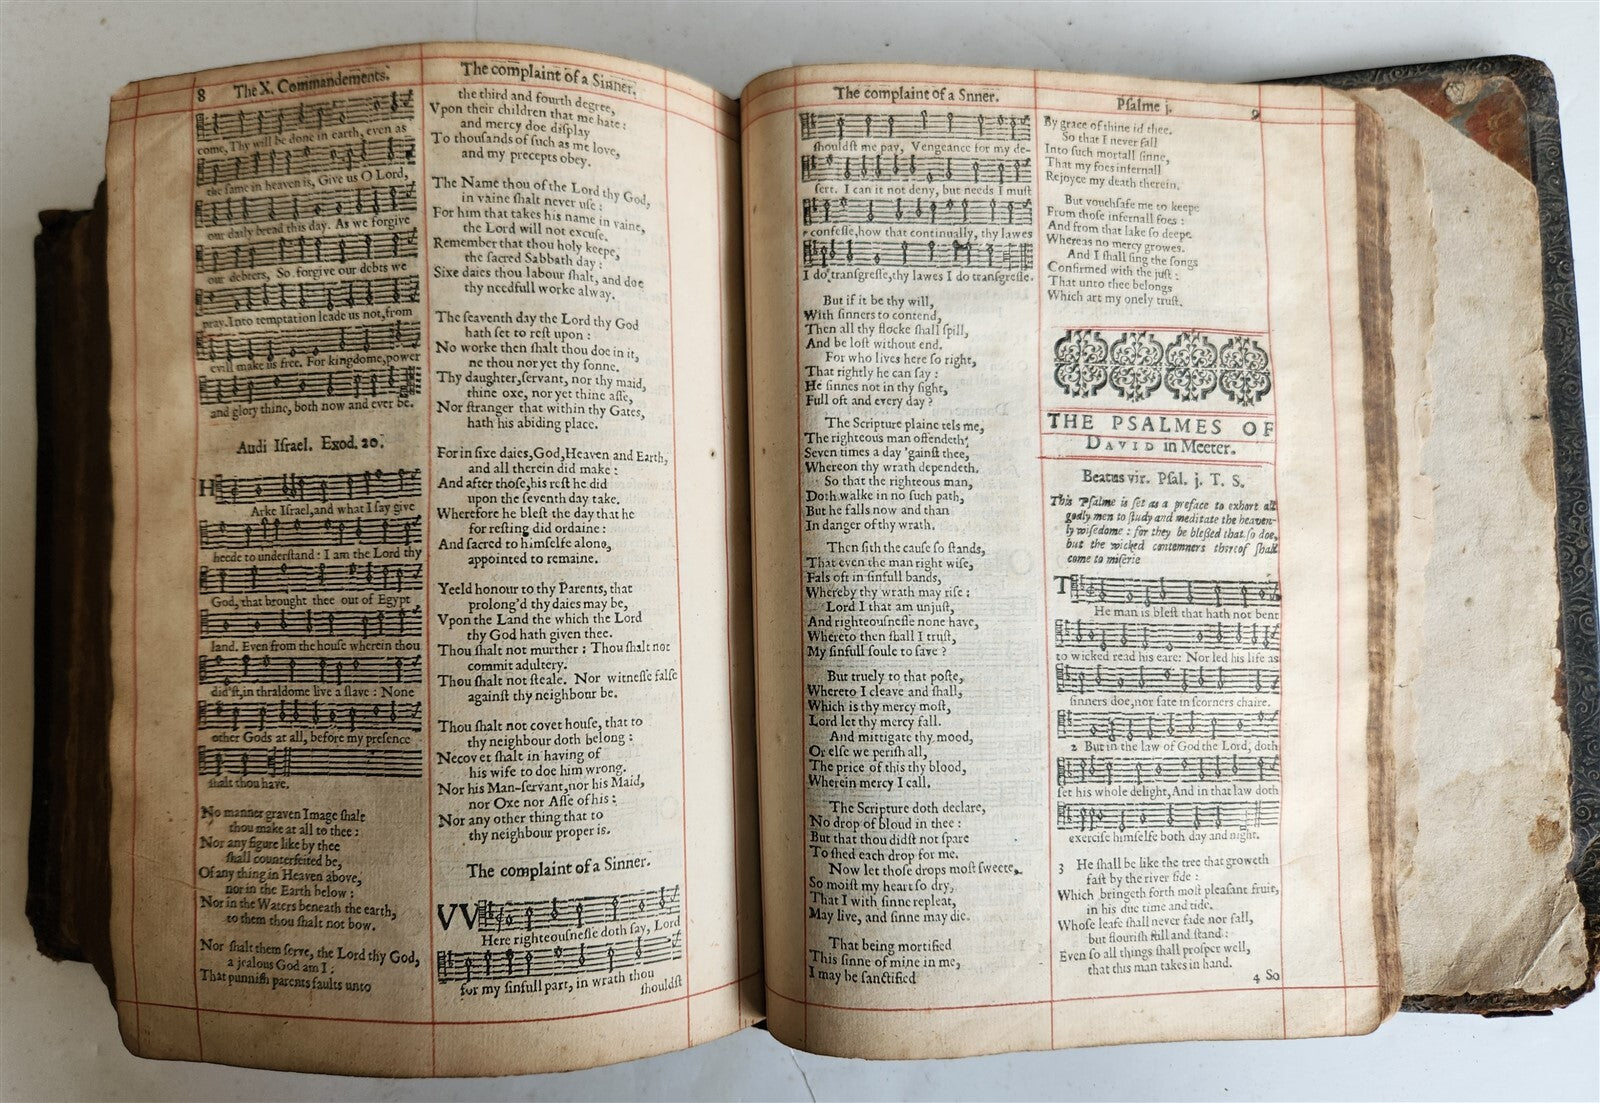 8 The X. Commandements.
come, Thy will be done in earth, even as
the same in heaven is, Give us O Lord,
our daily bread this day. As we forgive
our debters, So forgive our debts we
pray. Into temptation leade us not, from
evill make us free. For kingdome, power
and glory thine, both now and ever be.
Audi Israel. Exod. 20.
H
Arke Israel, and what I say give
heede to understand: I am the Lord thy
God, that brought thee out of Egypt
land. Even from the house wherein thou
did'st, in thraldome live a slave: None
other Gods at all, before my presence
shalt thou have.
No manner graven Image shale
thou make at all to thee:
Nor any figure like by thee
shall counterfeited be,
Of any thing in Heaven above,
nor in the Earth below:
Nor in the Waters beneath the earth,
to them thou shalt not bow.
Nor shalt them serve, the Lord thy God,
a jealous God am I:
That punnish parents faults unto
The complaint of a Sinner.
the third and fourth degree,
Vpon their children that me hate:
and mercy doe display
To thousands of such as me love,
and my precepts obey.
The Name thou of the Lord thy God,
in vaine shalt never use:
For him that takes his name in vaine,
the Lord will not excuse.
Remember that thou holy keepe,
the sacred Sabbath day:
Sixe daies thou labour shalt, and doe
thy needfull worke alway.
The seaventh day the Lord thy God
hath set to rest upon:
No worke then shalt thou doe in it,
ne thou nor yet thy sonne.
Thy daughter, servant, nor thy maid,
thine oxe, nor yet thine asse,
Nor stranger that within thy Gates,
hath his abiding place.
For in sixe daies, God, Heaven and Earth,
and all therein did make:
And after those, his rest he did
upon the seventh day take.
Wherefore he blest the day that he
for resting did ordaine:
And sacred to himselfe alone,
appointed to remaine.
Yeeld honour to thy Parents, that
prolong'd thy daies may be,
Vpon the Land the which the Lord
thy God hath given thee.
Thou shalt not murther: Thou shalt not
commit adultery.
Thou shalt not steale. Nor witnesse false
against thy neighbour be.
Thou shalt not covet house, that to
thy neighbour doth belong:
Ne covet shalt in having of
his wife to doe him wrong.
Nor his Man-servant, nor his Maid,
nor Oxe nor Asse of his:
Nor any other thing that to
thy neighbour proper is.
The complaint of a Sinner.
VV
Here righteousnesse doth say, Lord
for my sinfull part, in wrath thou
shouldst
The complaint of a Snner.
shouldst me pay, Vengeance for my de-
sert. I can it not deny, but needs I must
confesse, how that continually, thy lawes
I do transgresse, thy lawes I do transgresse.
But if it be thy will,
With sinners to contend,
Then all thy flocke shall spill,
And be lost without end.
For who lives here so right,
That rightly he can say:
He sinnes not in thy sight,
Full oft and every day?
The Scripture plaine tels me,
The righteous man offendeth;
Seven times a day 'gainst thee,
Whereon thy wrath dependeth.
So that the righteous man,
Doth walke in no such path,
But he falls now and than
In danger of thy wrath.
Then sith the cause so stands,
That even the man right wise,
Fals oft in sinfull bands,
Whereby thy wrath may rise:
Lord I that am unjust,
And righteousnesse none have,
Whereto then shall I trust,
My sinfull soule to save?
But truely to that poste,
Whereto I cleave and shall,
Which is thy mercy most,
Lord let thy mercy fall.
And mittigate thy mood,
Or else we perish all,
The price of this thy blood,
Wherein mercy I call.
The Scripture doth declare,
No drop of bloud in thee:
But that thou didst not spare
To shed each drop for me.
Now let those drops most sweete,
So moist my heart so dry,
That I with sinne repleat,
May live, and sinne may die.
That being mortified
This sinne of mine in me,
I may be sanctified
Psalme j. 9
By grace of thine id thee.
So that I never fall
Into such mortall sinne,
That my foes infernall
Rejoyce my death therein.
But vouchsafe me to keepe
From those infernall foes:
And from that lake so deepe
Whereas no mercy growes.
And I shall sing the songs
Confirmed with the just:
That unto thee belongs
Which art my onely trust.
THE PSALMES OF
DAVID in Meeter.
Beatus vir. Psal. j. T. S.
This Psalme is set as a preface to exhort all
godly men to study and meditate the heaven-
ly wisedome: for they be blessed that so doe,
but the wicked contemners thereof shall
come to miserie
T
He man is blest that hath not bent
to wicked read his eare: Nor led his life as
sinners doe, nor sate in scorners chaire.
2 But in the law of God the Lord, doth
set his whole delight, And in that law doth
exercise himselfe both day and night.
3 He shall be like the tree that groweth
fast by the river side:
Which bringeth forth most pleasant fruit,
in his due time and tide.
Whose leafe shall never fade nor fall,
but flourish still and stand:
Even so all things shall prosper well,
that this man takes in hand.
4 So